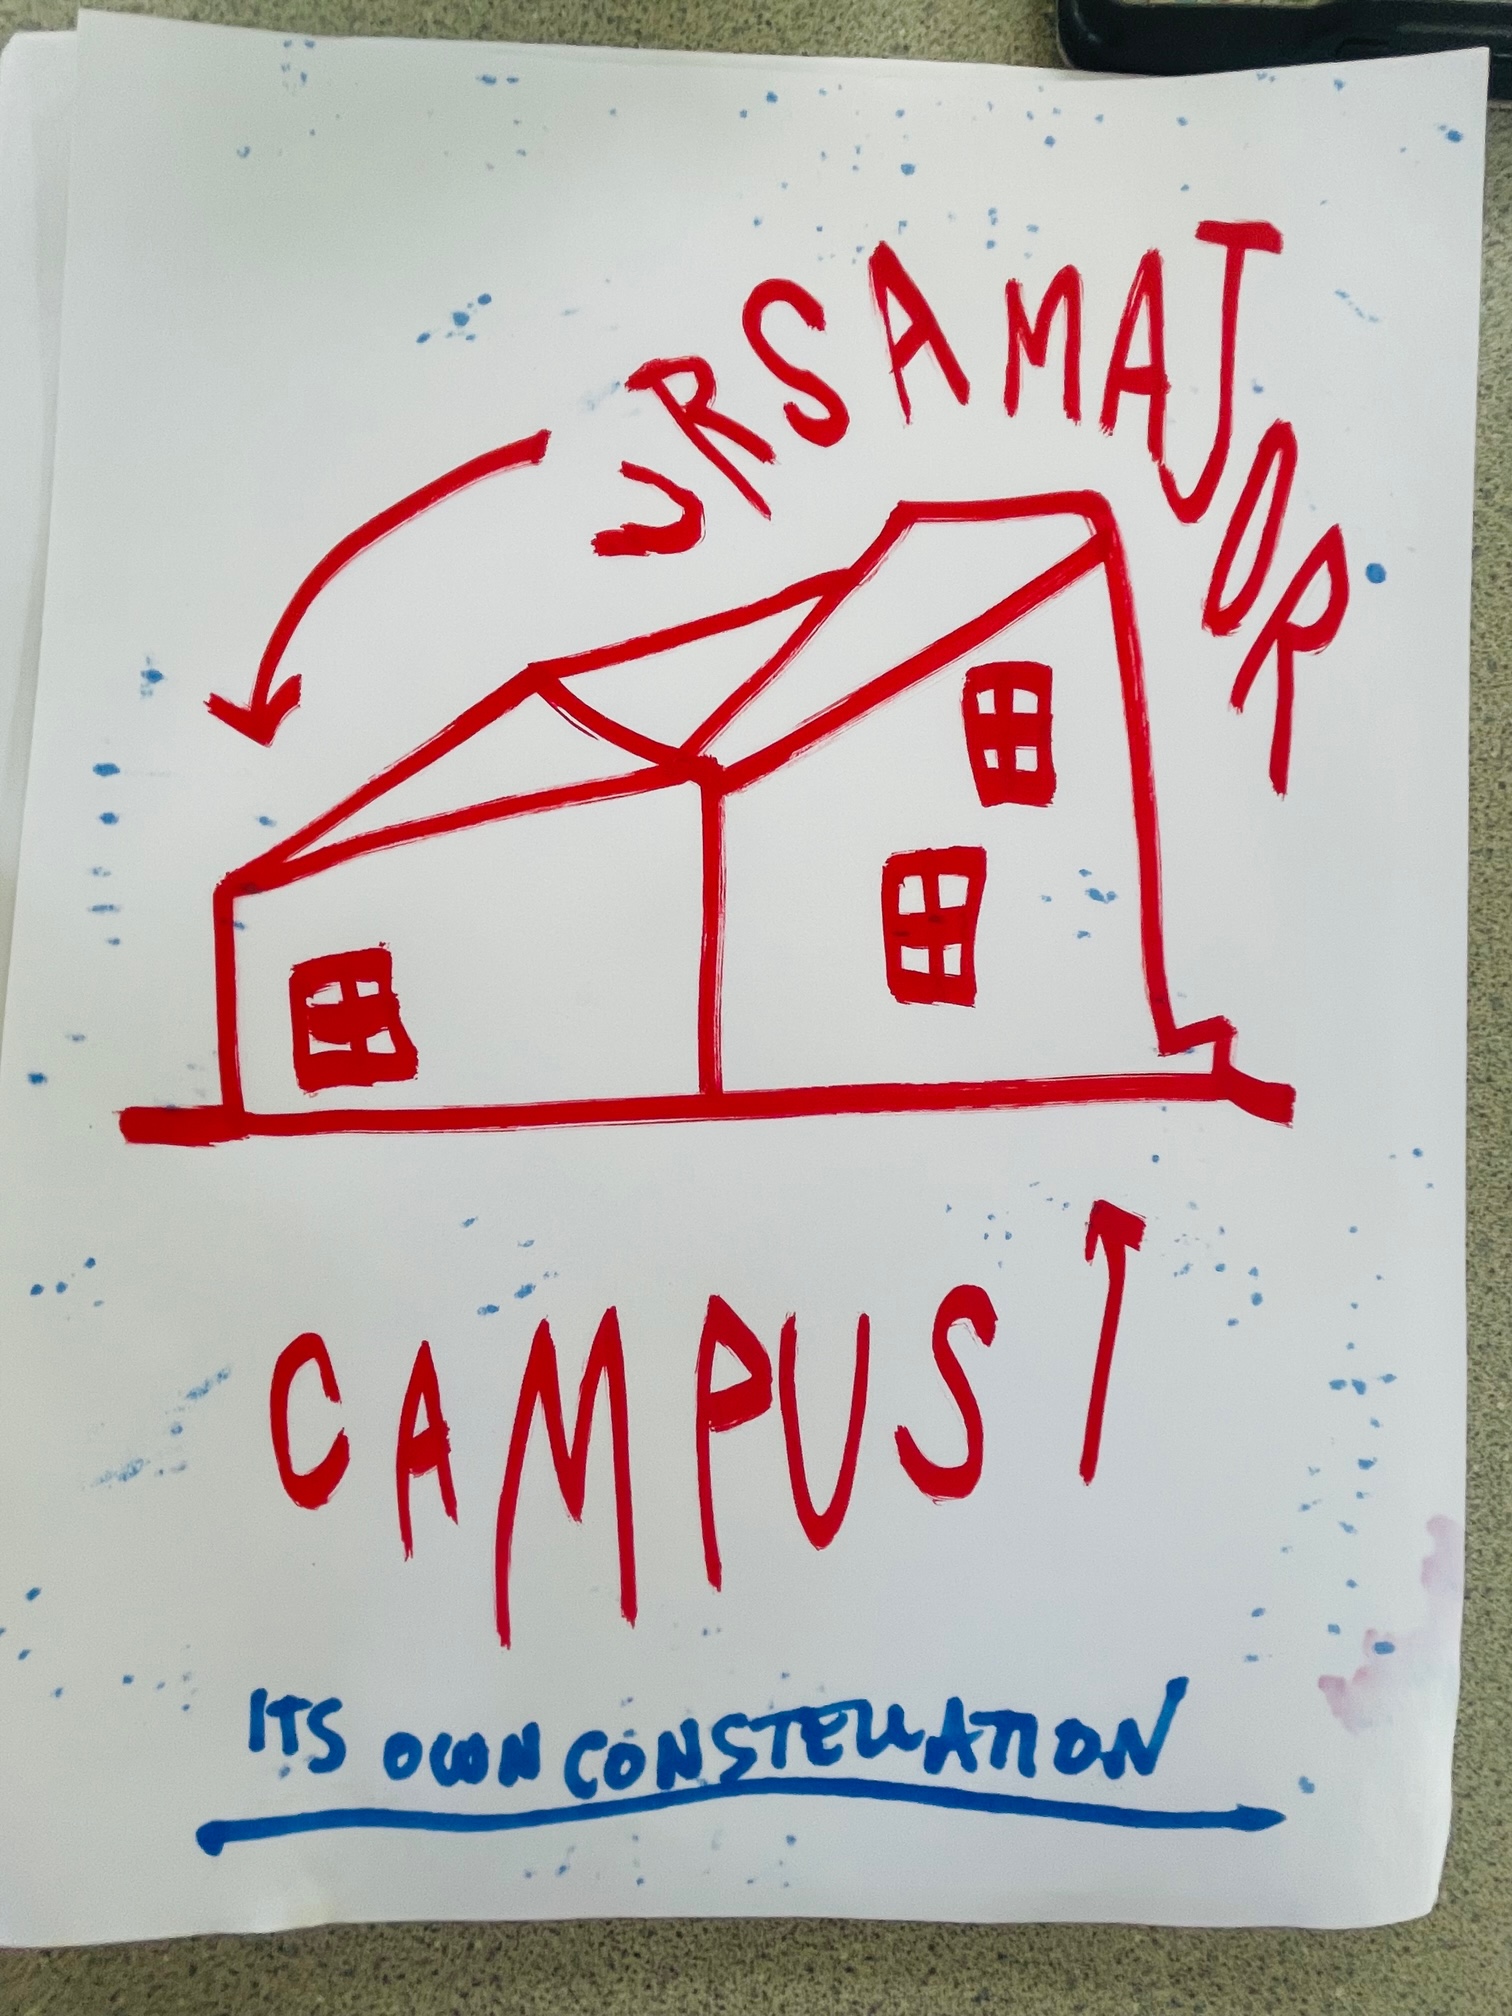 URSA MAJOR
CAMPUS
ITS OWN CONSTELLATION